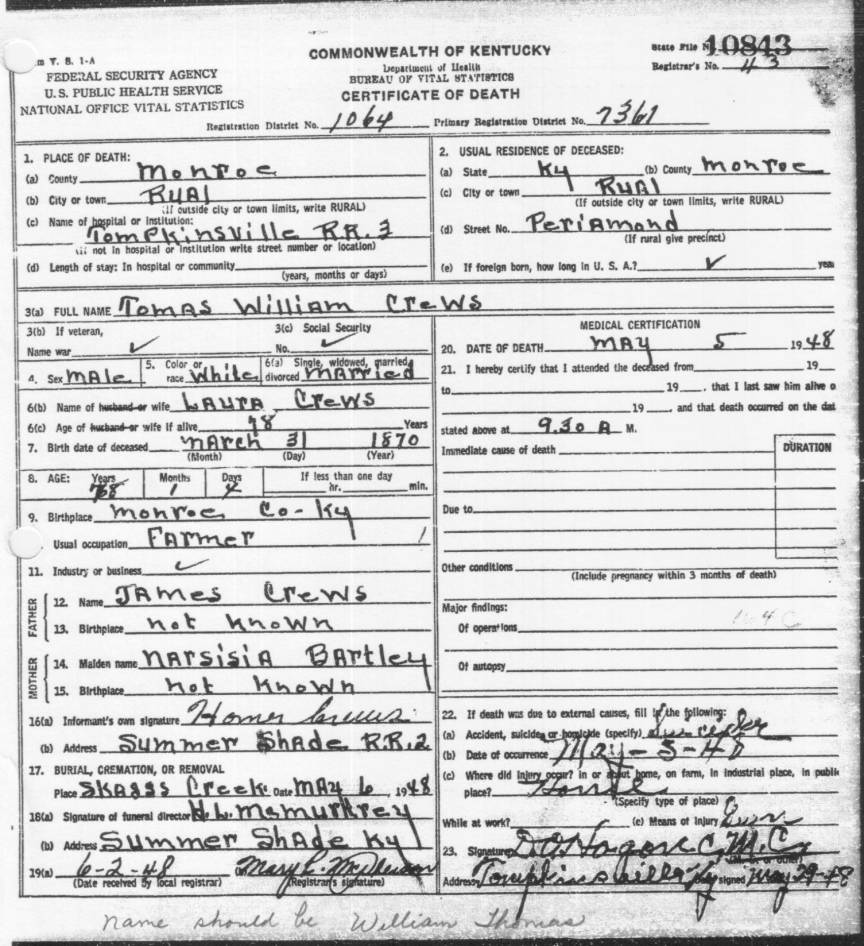 m V. S. 1-A
FEDERAL SECURITY AGENCY
U.S. PUBLIC HEALTH SERVICE
NATIONAL OFFICE VITAL STATISTICS
COMMONWEALTH OF KENTUCKY
Department of Health
BUREAU OF VITAL STATISTICS
CERTIFICATE OF DEATH
State File N 10843
Registrar's No. 43
Registration District No. 1064 Primary Registration District No. 7361
1. PLACE OF DEATH:
(a) County Monroe
(b) City or town RurAl
(If outside city or town limits, write RURAL)
(c) Name of hospital or institution:
TompKinsville R.R. 3
(If not in hospital or institution write street number or location)
(d) Length of stay: In hospital or community
(years, months or days)
2. USUAL RESIDENCE OF DECEASED:
(a) State Ky (b) County Monroe
(c) City or town RurAl
(If outside city or town limits, write RURAL)
(d) Street No. PeriAmond
(If rural give precinct)
(e) If foreign born, how long in U. S. A.? ✓ yea
3(a) FULL NAME TomAs William Crews
3(b) If veteran,
Name war ✓
3(c) Social Security
No. ✓
4. Sex MAle
5. Color or
race White
6(a) Single, widowed, married,
divorced MArried
6(b) Name of husband or wife LAurA Crews
6(c) Age of husband or wife if alive 78 Years
7. Birth date of deceased MArch 31 1870
(Month) (Day) (Year)
8. AGE: Years Months Days If less than one day
78 1 4 hr. min.
9. Birthplace Monroe Co - Ky
Usual occupation FArmer
11. Industry or business ✓
FATHER
12. Name JAmes Crews
13. Birthplace not Known
MOTHER
14. Maiden name NArsisiA BArtley
15. Birthplace not Known
16(a) Informant's own signature Homer Crews
(b) Address Summer ShAde R.R.2
17. BURIAL, CREMATION, OR REMOVAL
Place SKAggs Creek Date MAy 6, 1948
18(a) Signature of funeral director H.L. McMurtrey
(b) Address Summer ShAde Ky
19(a) 6-2-48
(Date received by local registrar) (Registrar's signature)
MEDICAL CERTIFICATION
20. DATE OF DEATH MAy 5 1948
21. I hereby certify that I attended the deceased from 19
to 19 , that I last saw him alive o
19 , and that death occurred on the dat
stated above at 9.30 A M.
Immediate cause of death
DURATION
Due to
Other conditions
(Include pregnancy within 3 months of death)
Major findings:
164C
Of operations
Of autopsy
22. If death was due to external causes, fill in the following:
(a) Accident, suicide or homicide (specify)
(b) Date of occurrence May-5-48
(c) Where did injury occur? in or about home, on farm, in industrial place, in public
place?
(Specify type of place)
While at work? (e) Means of injury
23. Signature
(M. D. or other)
Address Tompkinsville Ky signed May 29-48
name should be William Thomas